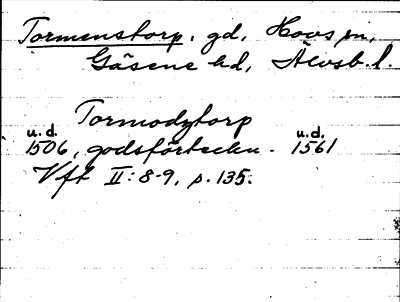 Tormenstorp, gd, Hovs sn,
Gäsene hd, Älvsb. l.
Tormodztorp
u.d. u.d.
1506, godsförteckn. 1561
Vft II: 8-9, p. 135.